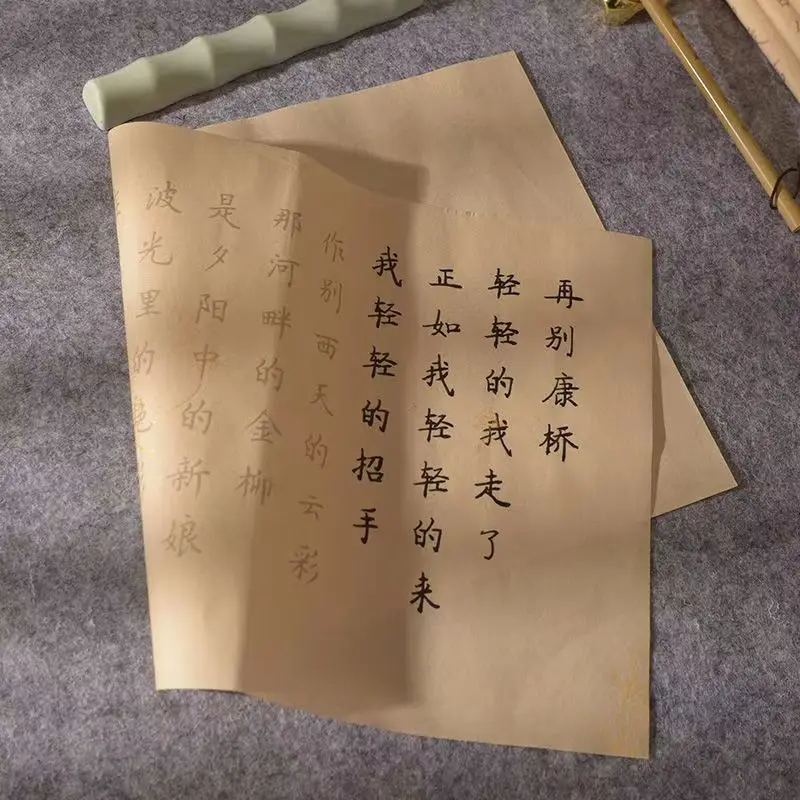 再别康桥
轻轻的我走了
正如我轻轻的来
我轻轻的招手
作别西天的云彩
那河畔的金柳
是夕阳中的新娘
波光里的艳